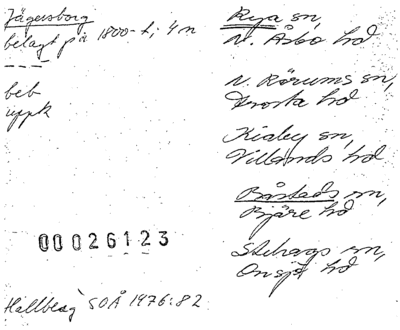 Jägersborg
belagt på 1800-t; 4 m
beb
uppk
00026123
Hallberg SOÅ 1976:82
Rya sn,
N. Åsbo hd
N. Rörums sn,
Frosta hd
Kiaby sn,
Villands hd
Båstads sn,
Bjäre hd
Stehags sn,
Onsjö hd